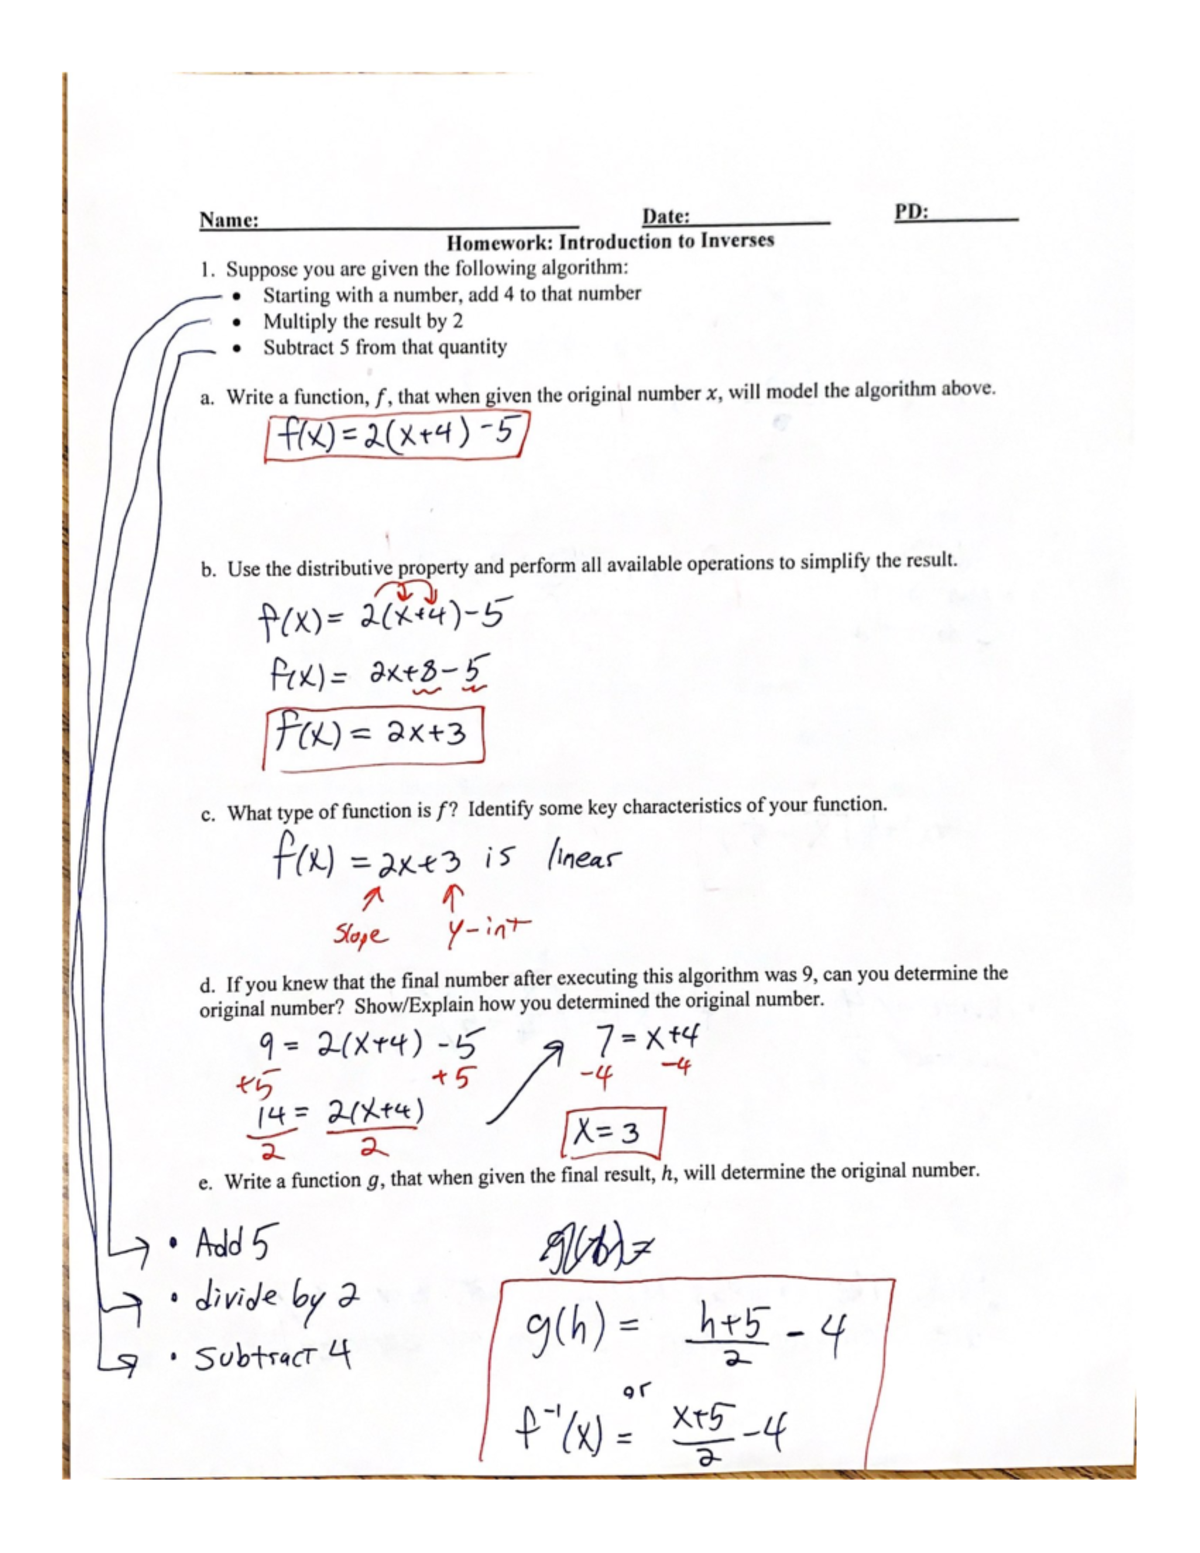 Name: Date: PD:
Homework: Introduction to Inverses
1. Suppose you are given the following algorithm:
• Starting with a number, add 4 to that number
• Multiply the result by 2
• Subtract 5 from that quantity
a. Write a function, f, that when given the original number x, will model the algorithm above.
f(x) = 2(x+4) -5
b. Use the distributive property and perform all available operations to simplify the result.
f(x) = 2(x+4)-5
f(x) = 2x+8-5
f(x) = 2x+3
c. What type of function is f? Identify some key characteristics of your function.
f(x) = 2x+3 is linear
Slope y-int
d. If you knew that the final number after executing this algorithm was 9, can you determine the
original number? Show/Explain how you determined the original number.
9 = 2(x+4) -5 7 = x+4
+5 +5 -4 -4
14 = 2(x+4) x = 3
2 2
e. Write a function g, that when given the final result, h, will determine the original number.
• Add 5
• divide by 2
• Subtract 4
g(h) = h+5 - 4
2
or
f⁻¹(x) = x+5 -4
2